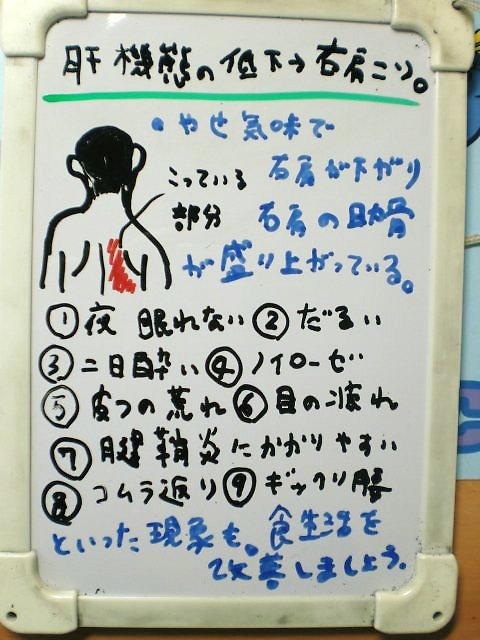 肝機態の低下→右肩こり。
•やせ気味で
右肩が下がり
右肩の肋骨
が盛り上がっている。
こっている
部分
①夜 眠れない ②だるい
③二日酔い ④ノイローゼ
⑤皮フの荒れ ⑥目の疲れ
⑦腱鞘炎にかかりやすい
⑧コムラ返り ⑨ギックリ腰
といった現象も。食生活を
改善しましょう。